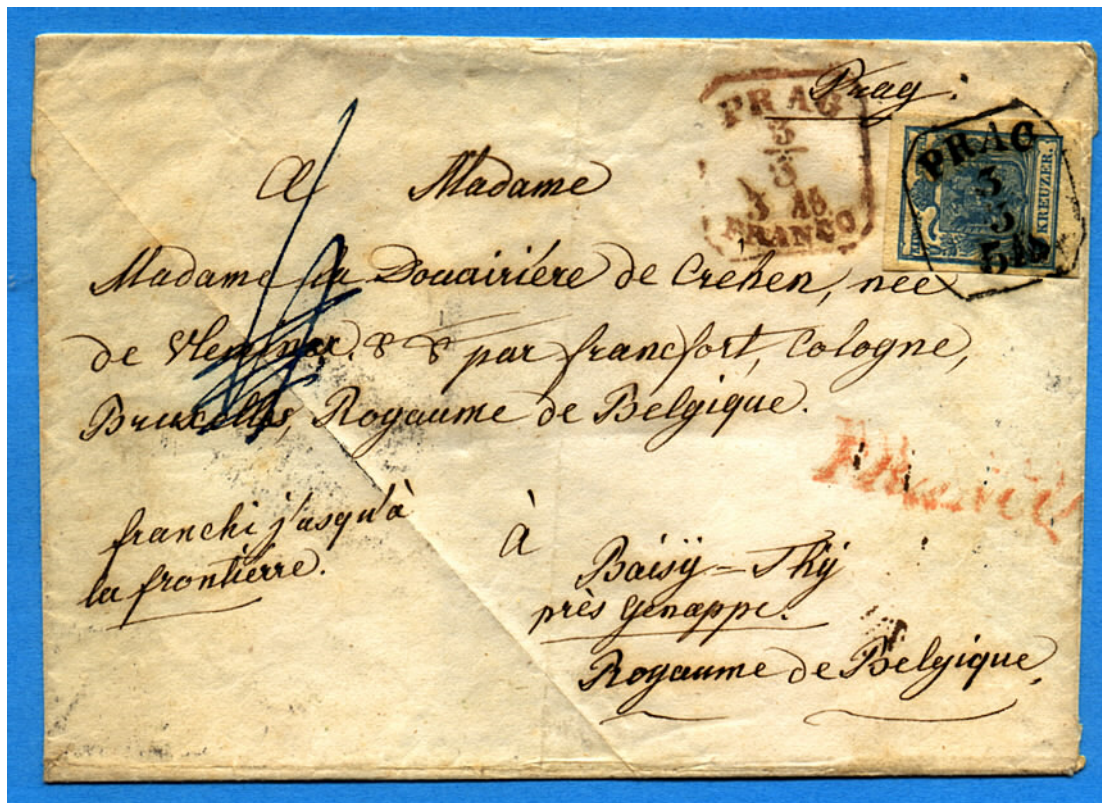 Prag.
PRAG
3
3
3 A6
FRANCO
PRAG
3
3
5 A6
KREUZER.
A Madame
Madame la Douairière de Crehen, nee
de par francfort, Cologne,
Bruxelles, Royaume de Belgique.
franchi jusqu'à
la frontierre.
à
Baisÿ = Thÿ
près Genappe.
Royaume de Belgique.